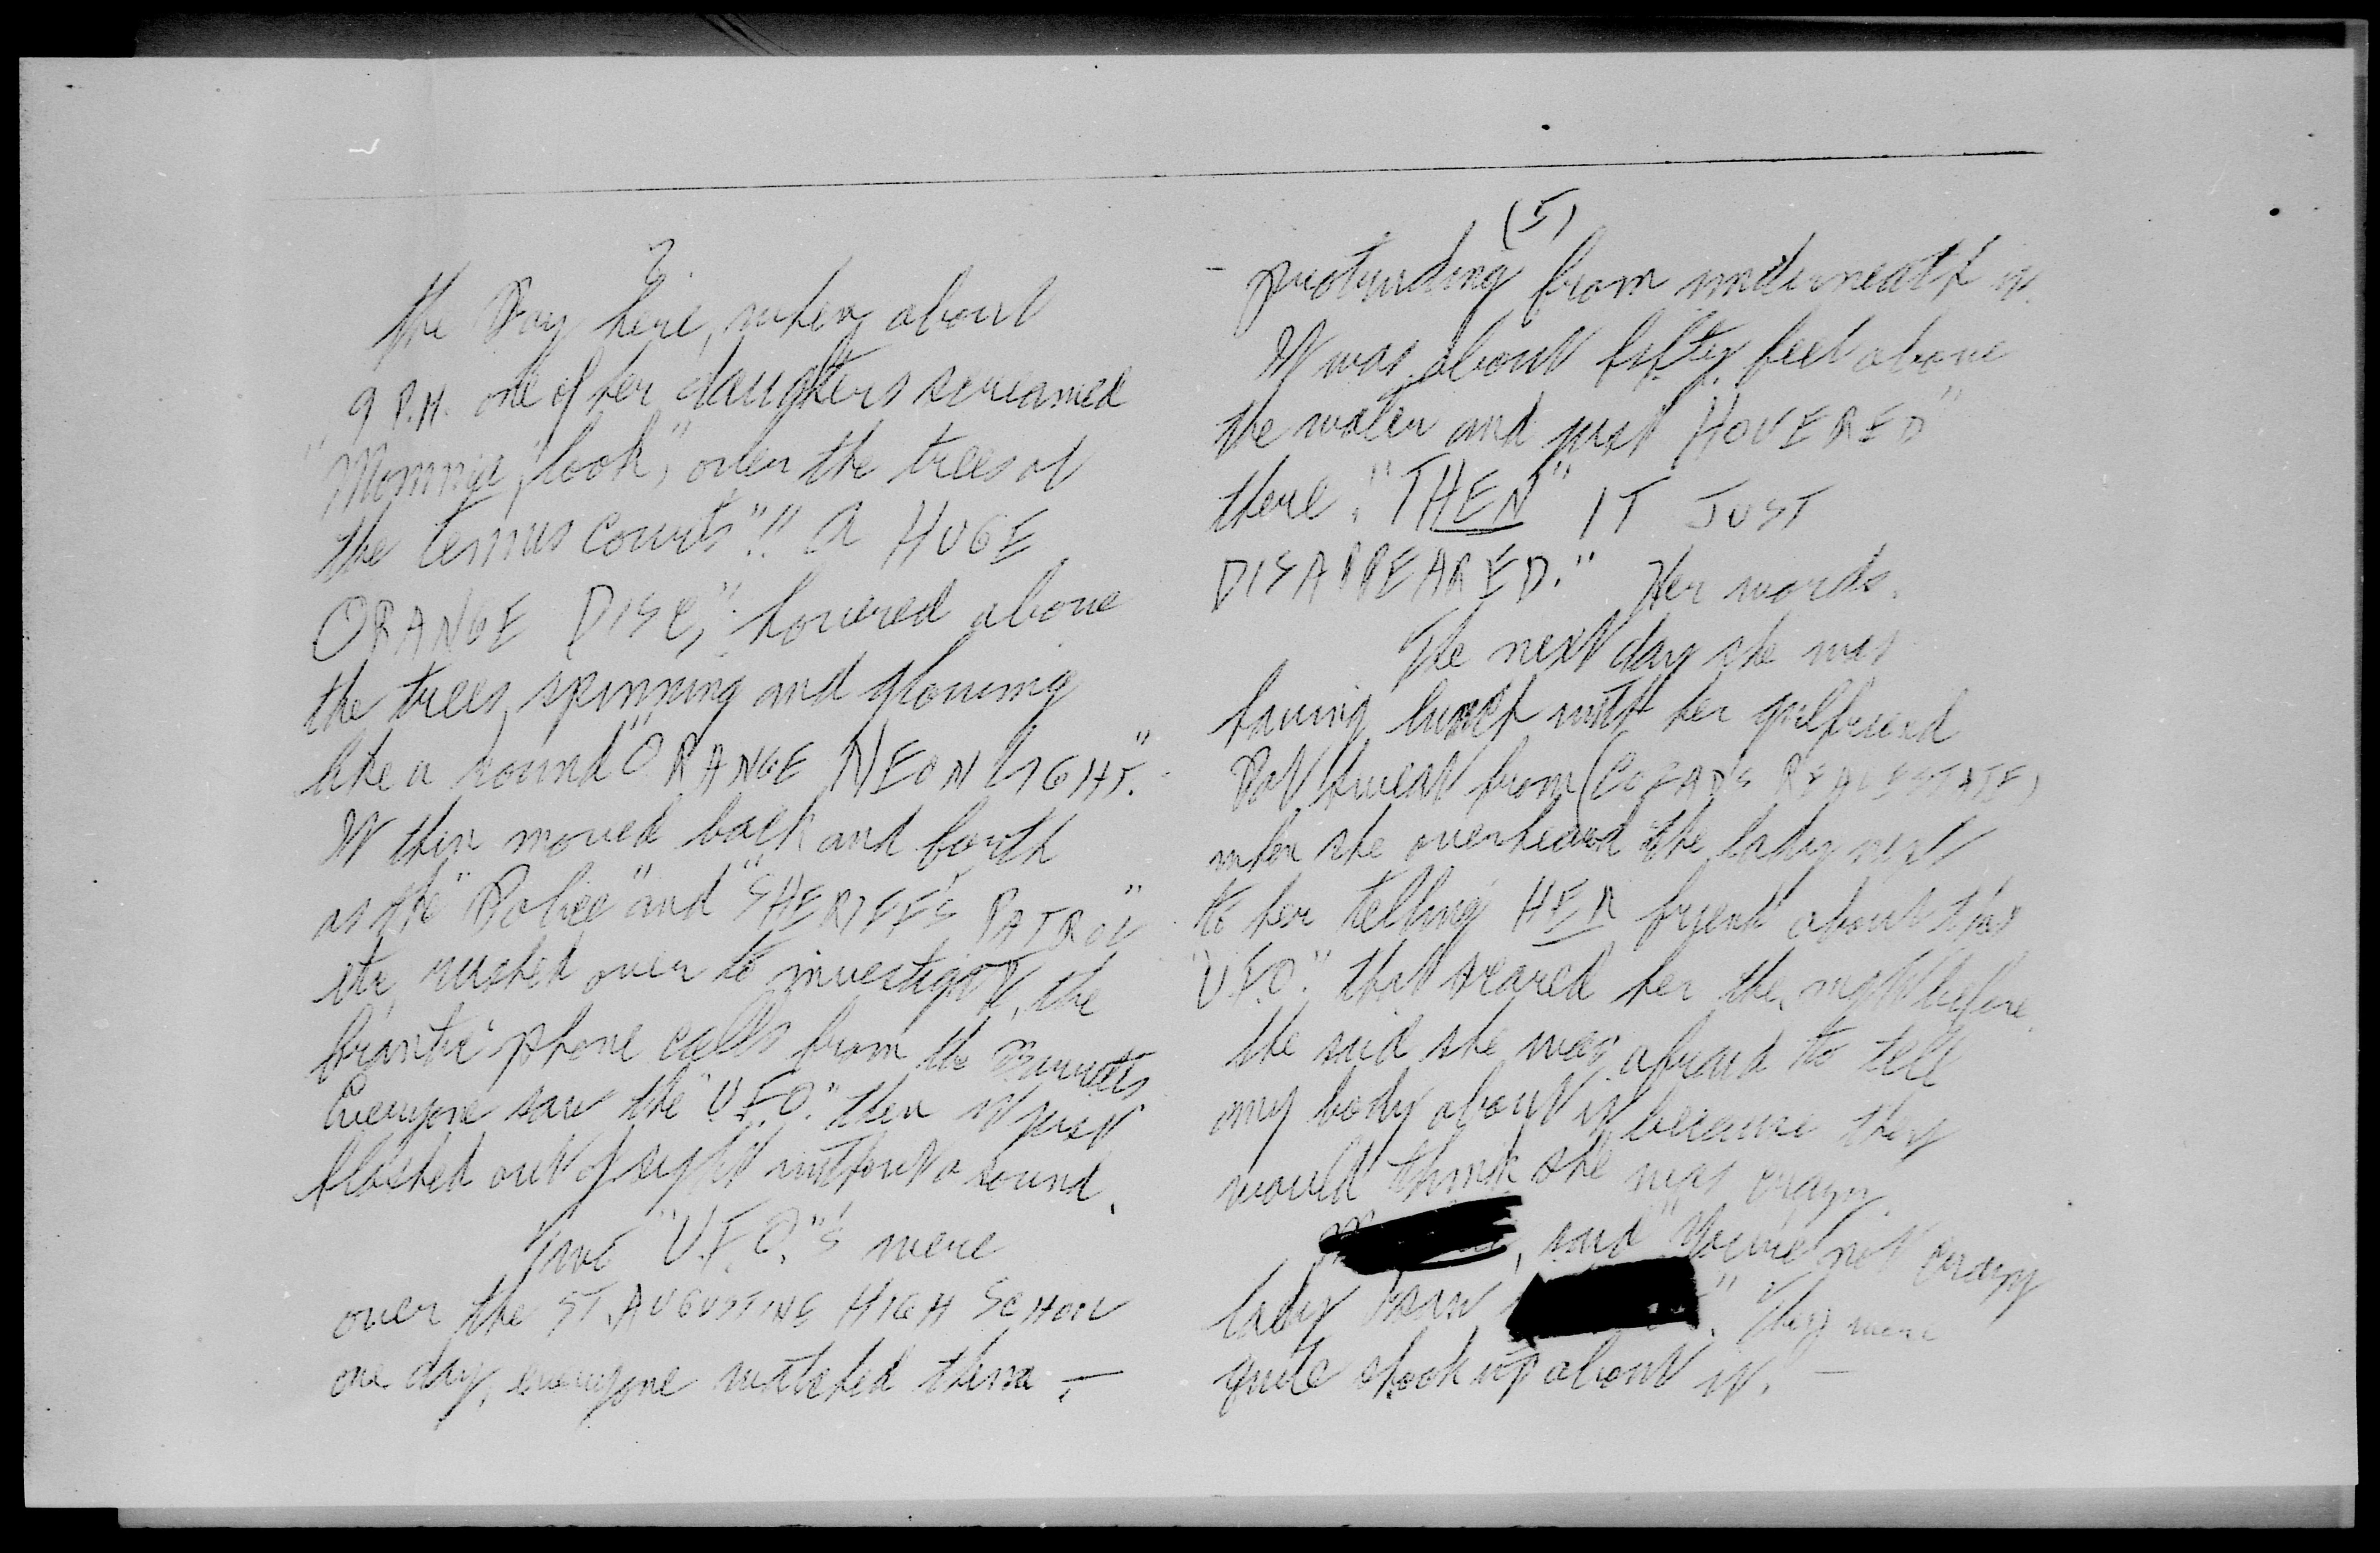 2.
the Bay here, when about
9 P.M. one of her daughters screamed
"Mommie, "look," over the trees at
the tennis courts"!! A HUGE
ORANGE DISC," hovered above
the trees, spinning and glowing
like a round "ORANGE NEON LIGHT."
It then moved back and forth
as the "Police" and "SHERIFF'S PATROL"
etc, rushed over to investigate, the
frantic phone calls from the
Everyone saw the "U.F.O." then it just
flashed out of sight without a sound.
Two "U.F.O."'s were
over the ST. AUGUSTINE HIGH SCHOOL
one day, everyone watched them -
(5)
- protruding from underneath it.
It was about fifty feet above
the water and just HOVERED"
there. "THEN" IT JUST
DISAPPEARED." Her words.
The next day she was
having lunch with her girlfriend
from (REAL ESTATE)
when she overheard the lady next
to her telling HER friend about this
"U.F.O." that scared her the night before.
She said she was afraid to tell
any body about it because they
would think she was crazy.
, said "You're not crazy
lady I saw ." They were
quite shook up about it. -